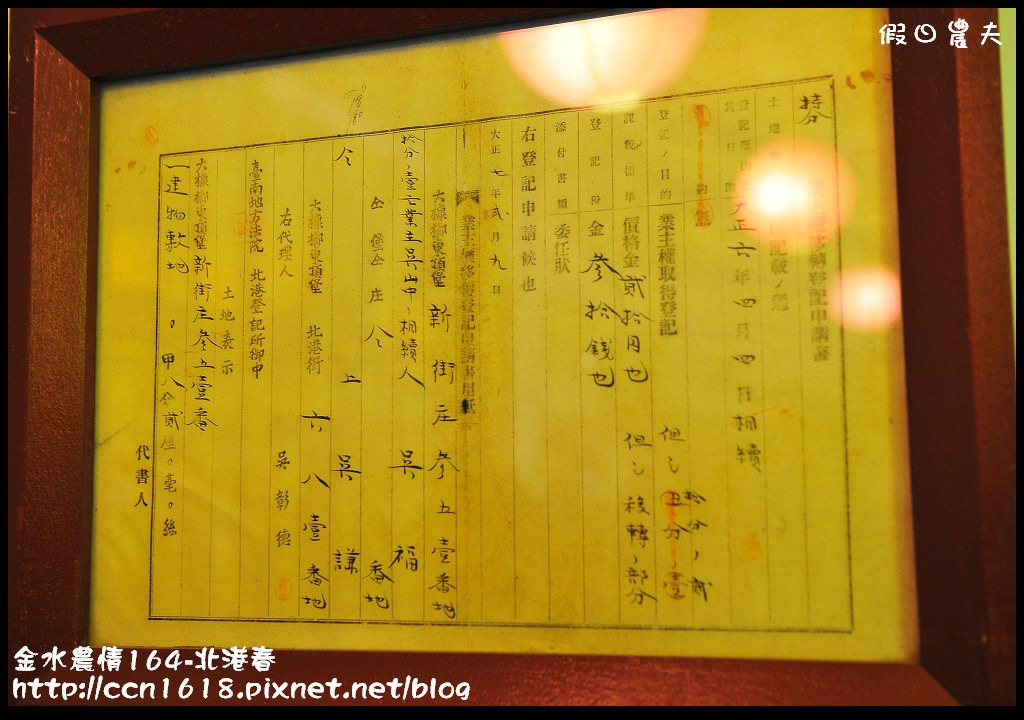 假日農夫
持分
移轉登記申請書
土地
記載ノ通
大正六年四月四日相續
登記ノ目的 業主權取得登記
但シ拾分ノ貳
課稅標準 價格金貳拾円也 但シ移轉ノ部分
登記稅 金參拾錢也
添付書類 委任狀
右登記申請候也
大正七年貳月九日
業主權移轉登記申請書用紙
大糠榔東頂堡新街庄參五壹番地
拾分ノ壹亡業主吳山中ノ相續人 吳福
仝堡仝庄仝番地
仝上 吳謙
大糠榔東頂堡 北港街 六八壹番地
右代理人 吳彰德
臺南地方法院 北港登記所御中
土地表示
大糠榔東頂堡新街庄參五壹番
一建物敷地 。甲八分貳厘。毫。絲
代書人
金水農情164-北港春
http://ccn1618.pixnet.net/blog